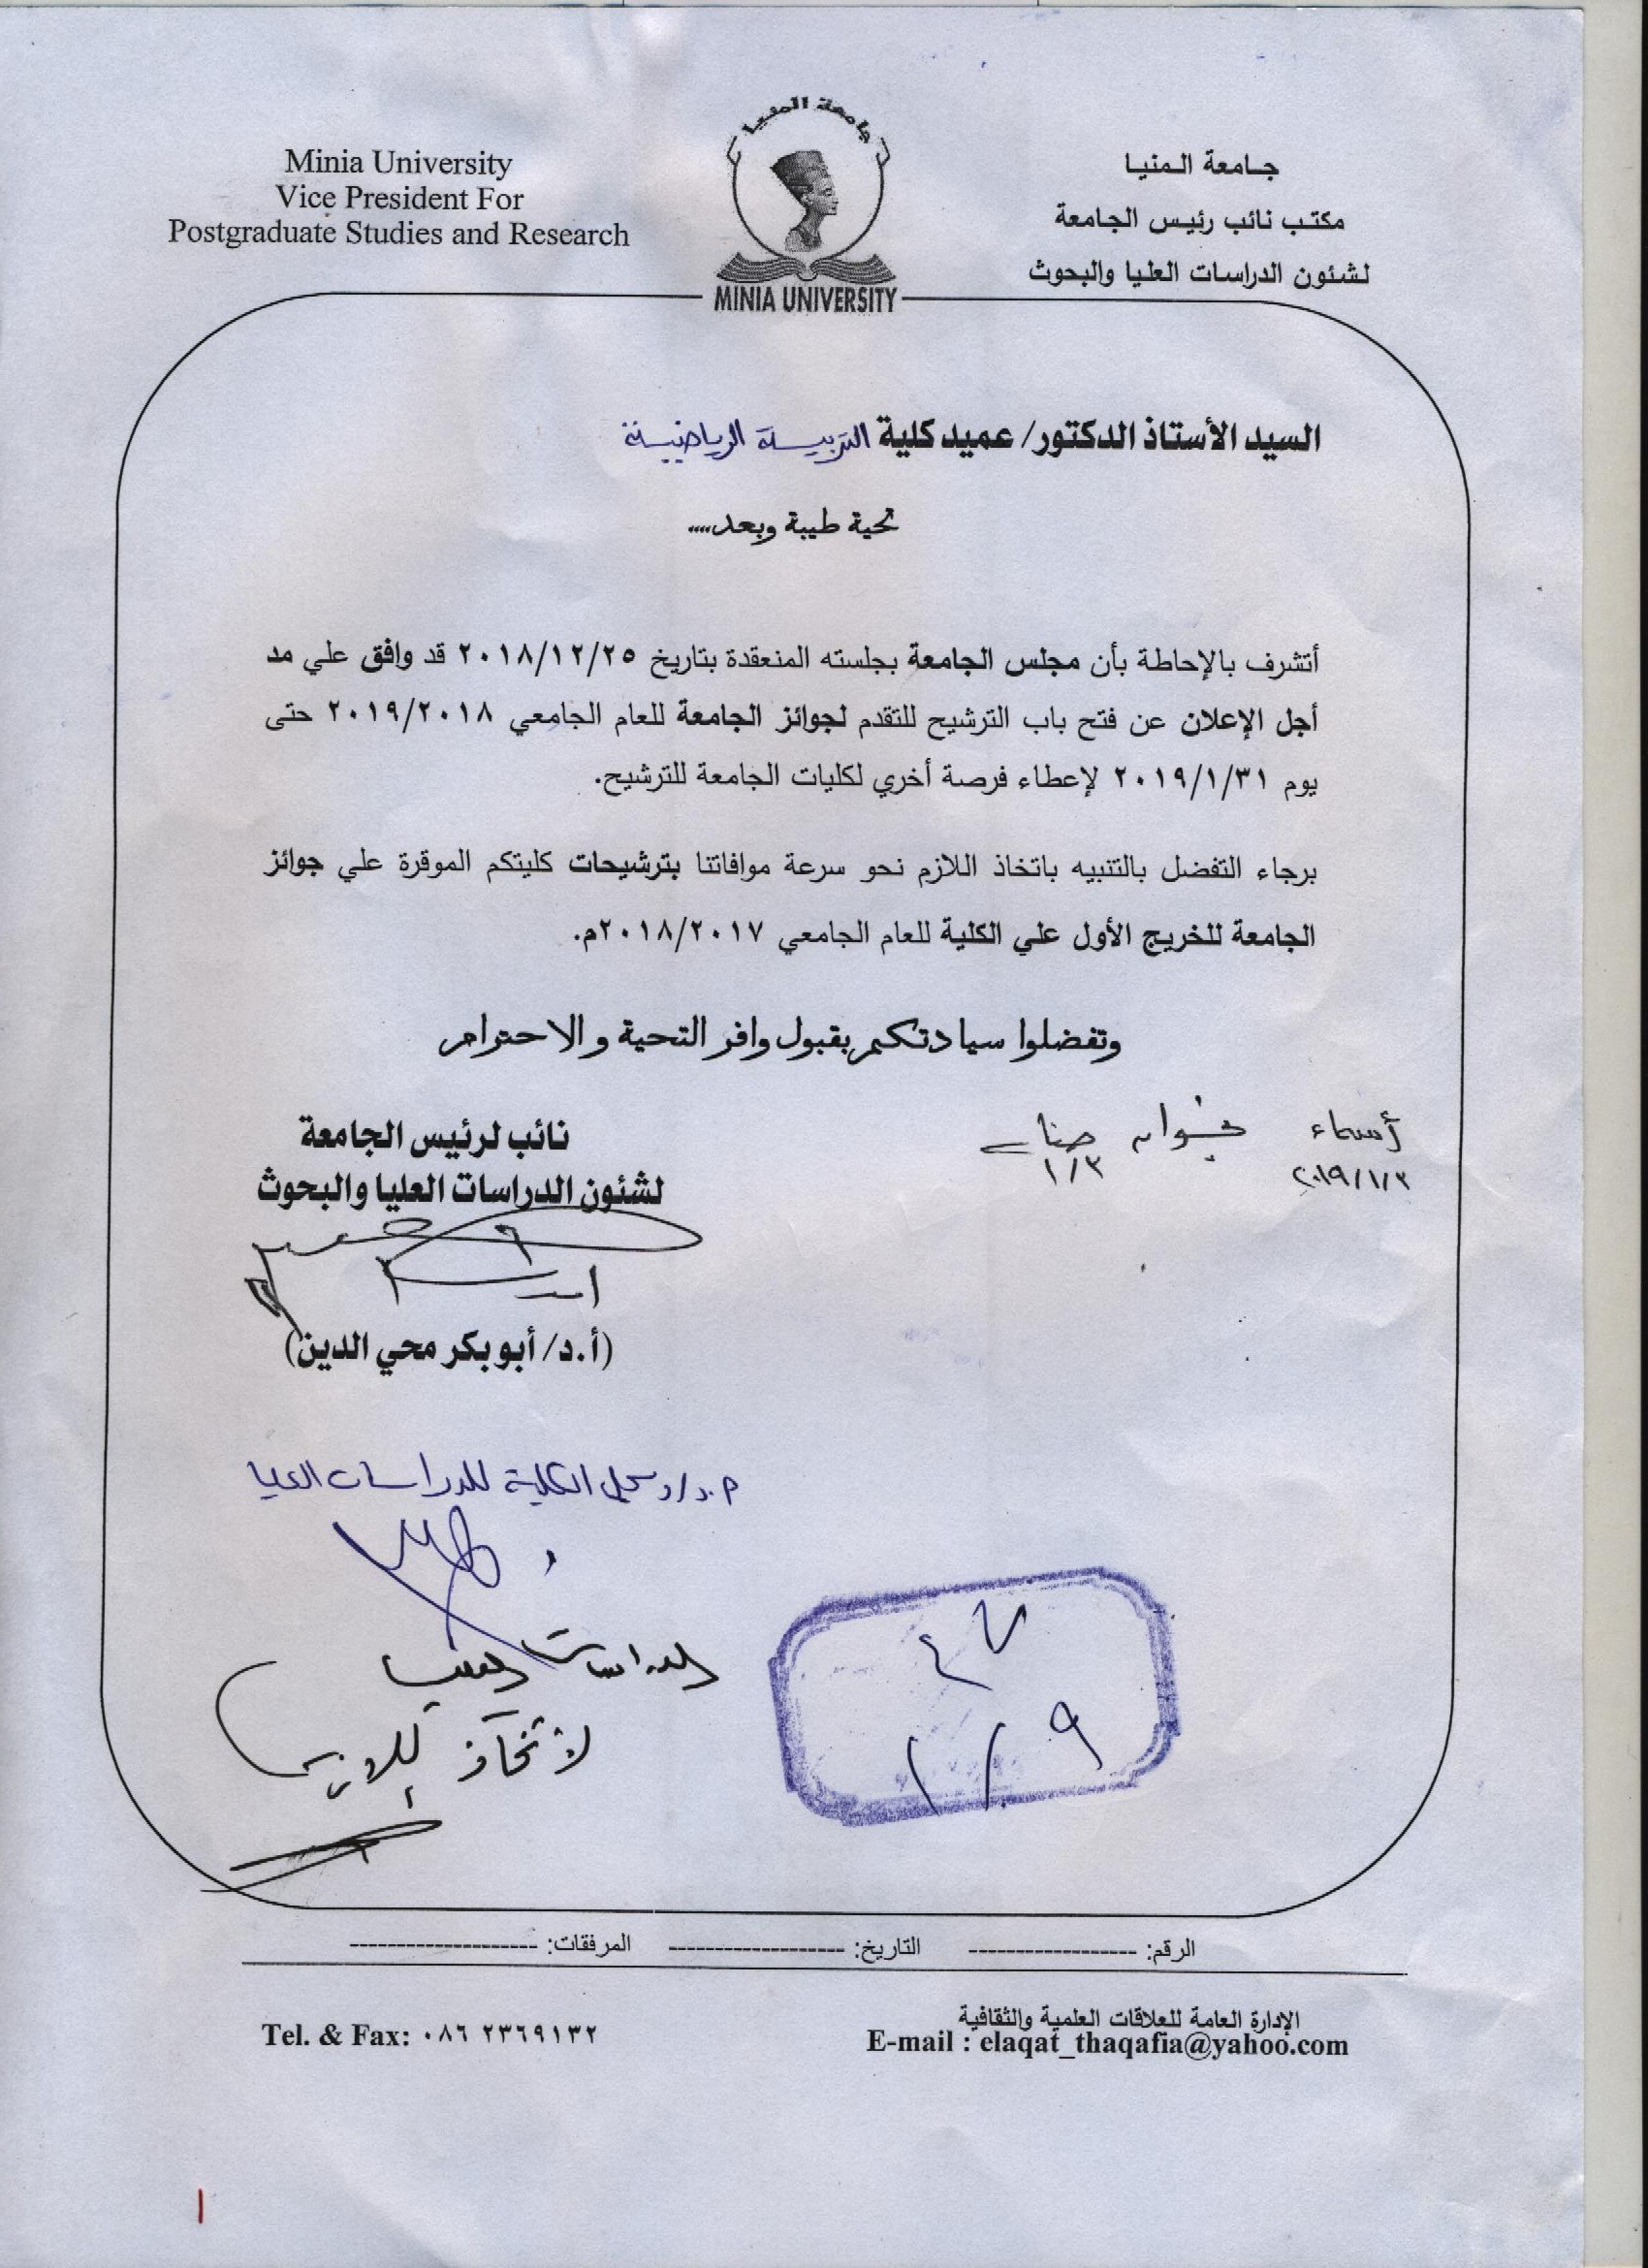 Minia University
Vice President For
Postgraduate Studies and Research
جامعة المنيا
MINIA UNIVERSITY
جامعة المنيا
مكتب نائب رئيس الجامعة
لشئون الدراسات العليا والبحوث
السيد الأستاذ الدكتور/ عميد كلية التربية الرياضية
تحية طيبة وبعد....
أتشرف بالإحاطة بأن مجلس الجامعة بجلسته المنعقدة بتاريخ ٢٠١٨/١٢/٢٥ قد وافق علي مد
أجل الإعلان عن فتح باب الترشيح للتقدم لجوائز الجامعة للعام الجامعي ٢٠١٩/٢٠١٨ حتى
يوم ٢٠١٩/١/٣١ لإعطاء فرصة أخري لكليات الجامعة للترشيح.
برجاء التفضل بالتنبيه باتخاذ اللازم نحو سرعة موافاتنا بترشيحات كليتكم الموقرة علي جوائز
الجامعة للخريج الأول علي الكلية للعام الجامعي ٢٠١٨/٢٠١٧م.
وتفضلوا سيادتكم بقبول وافر التحية والاحترام
أسماء
٢٠١٩/١/٢
نائب لرئيس الجامعة
لشئون الدراسات العليا والبحوث
(أ.د/ أبو بكر محي الدين)
م.د/ وكيل الكلية للدراسات العليا
الدراسات العليا
لاتخاذ اللازم
٤٧
١/٩
الرقم: ------------------ التاريخ: ------------------- المرفقات: --------------------
الإدارة العامة للعلاقات العلمية والثقافية
E-mail : elaqat_thaqafia@yahoo.com
Tel. & Fax: ٠٨٦ ٢٣٦٩١٣٢